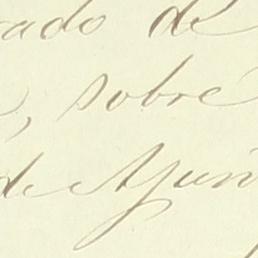 rado de
, sobre
de Ayun